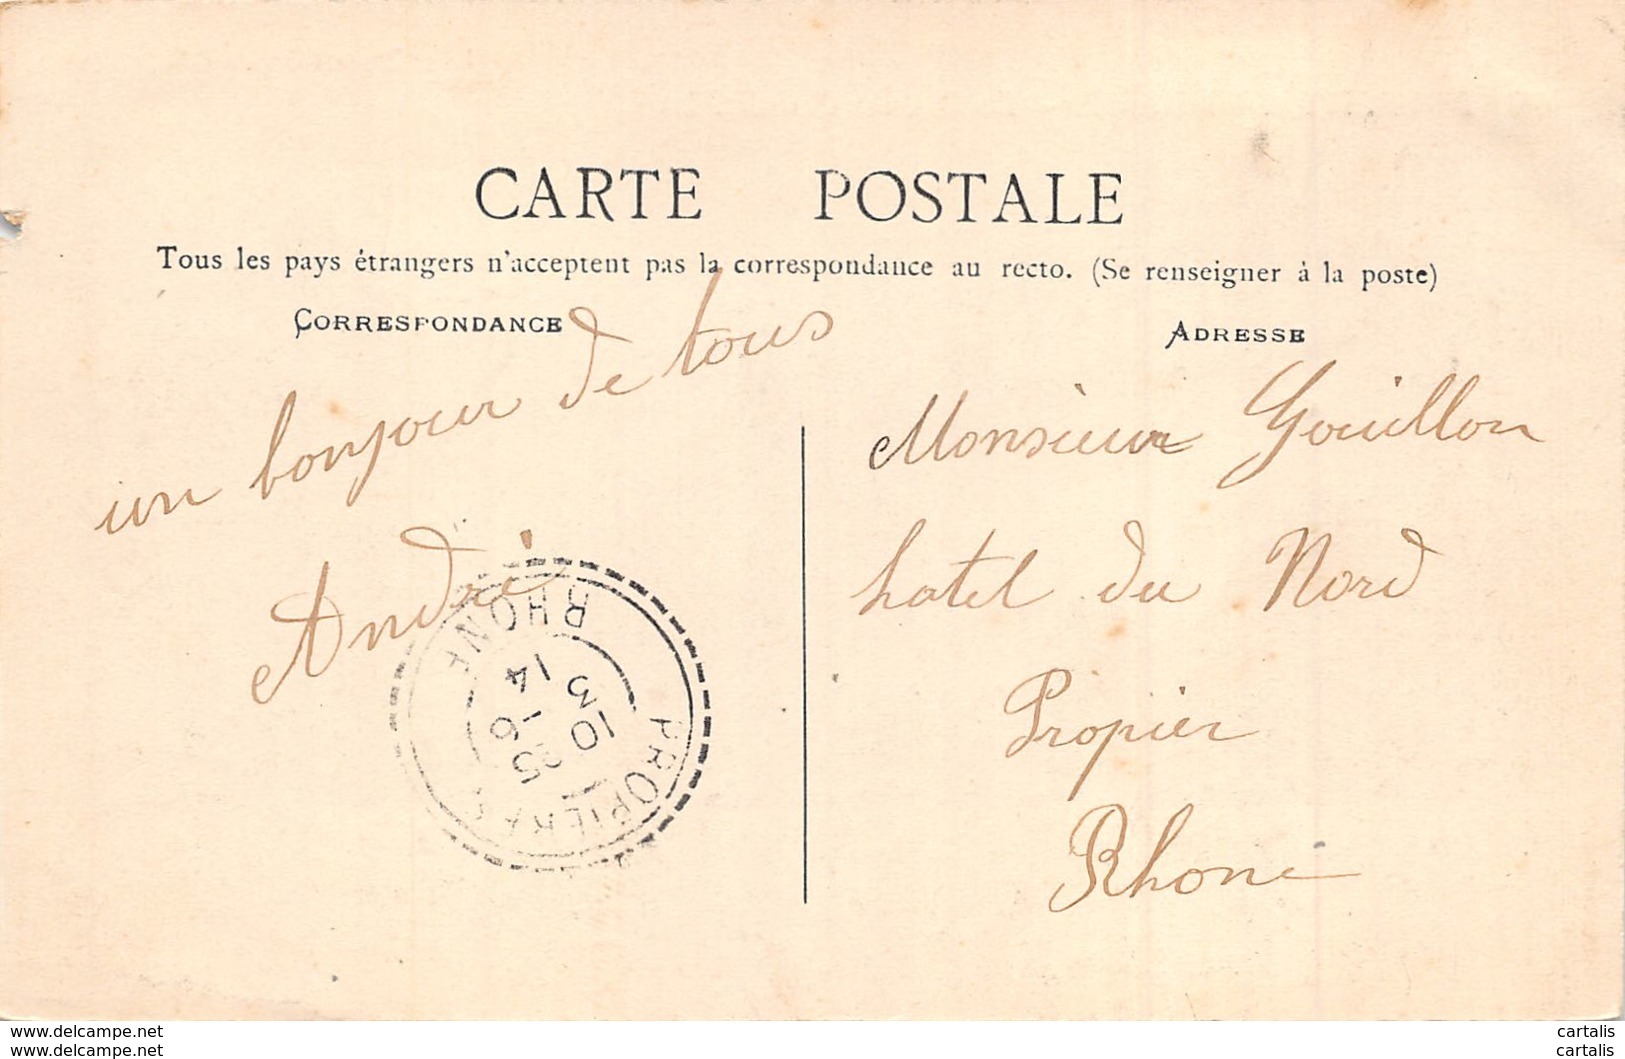 CARTE POSTALE
Tous les pays étrangers n'acceptent pas la correspondance au recto. (Se renseigner à la poste)
CORRESPONDANCE
un bonjour de tous
André
ADRESSE
Monsieur Gouillon
hotel du Nord
Propier
Rhone
RHONE
14
3
10
25 - 6
PROPIERES
www.delcampe.net
cartalis
www.delcampe.net
cartalis